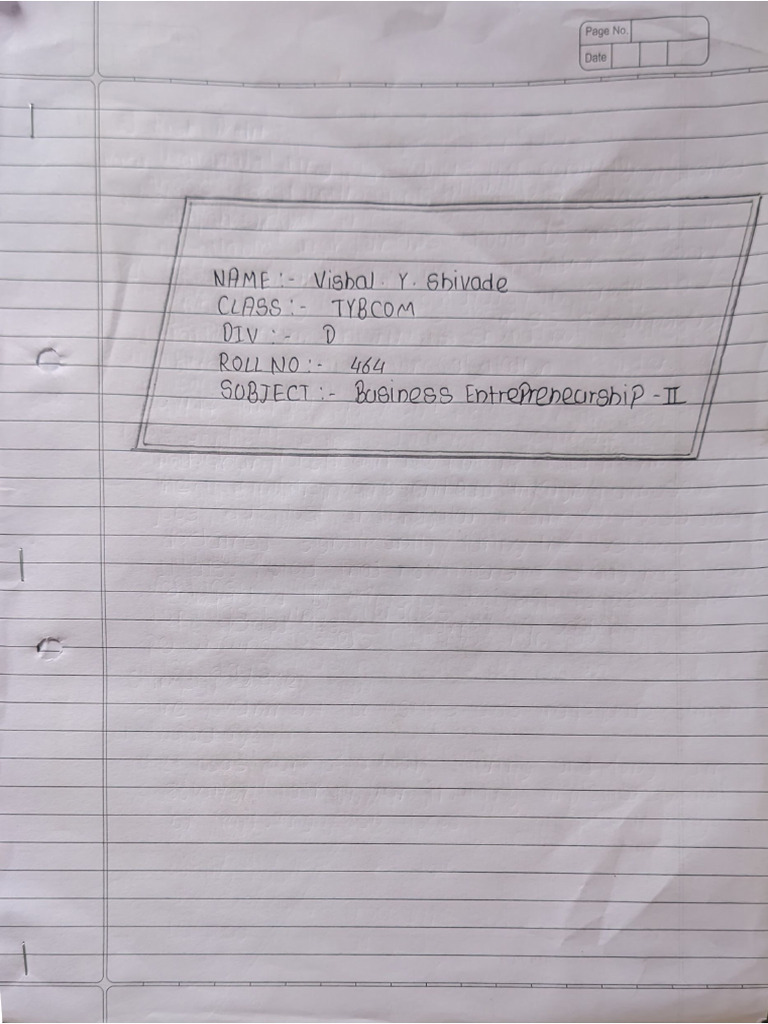 Page No.
Date
NAME :- Vishal . Y . Shivade
CLASS :- TYBCOM
DIV :- D
ROLL NO :- 464
SUBJECT :- Business Entrepreneurship - II